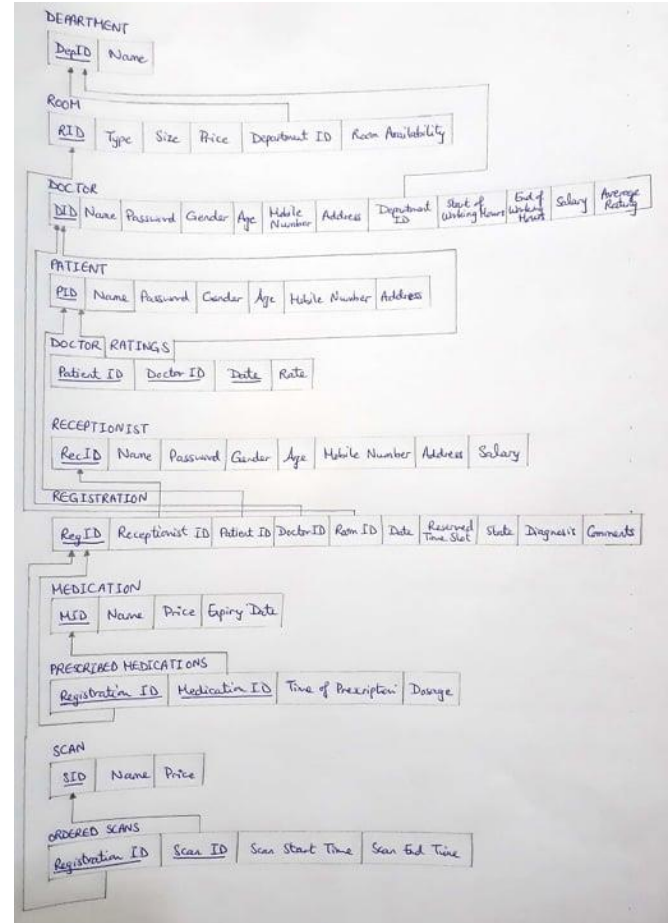 DEPARTMENT
DepID Name
ROOM
RID Type Size Price Department ID Room Availability
DOCTOR
DID Name Password Gender Age Mobile Number Address Department ID Start of Working Hours End of Working Hours Salary Average Rating
PATIENT
PID Name Password Gender Age Mobile Number Address
DOCTOR RATINGS
Patient ID Doctor ID Date Rate
RECEPTIONIST
RecID Name Password Gender Age Mobile Number Address Salary
REGISTRATION
RegID Receptionist ID Patient ID Doctor ID Room ID Date Reserved Time Slot State Diagnosis Comments
MEDICATION
MID Name Price Expiry Date
PRESCRIBED MEDICATIONS
Registration ID Medication ID Time of Prescription Dosage
SCAN
SID Name Price
ORDERED SCANS
Registration ID Scan ID Scan Start Time Scan End Time